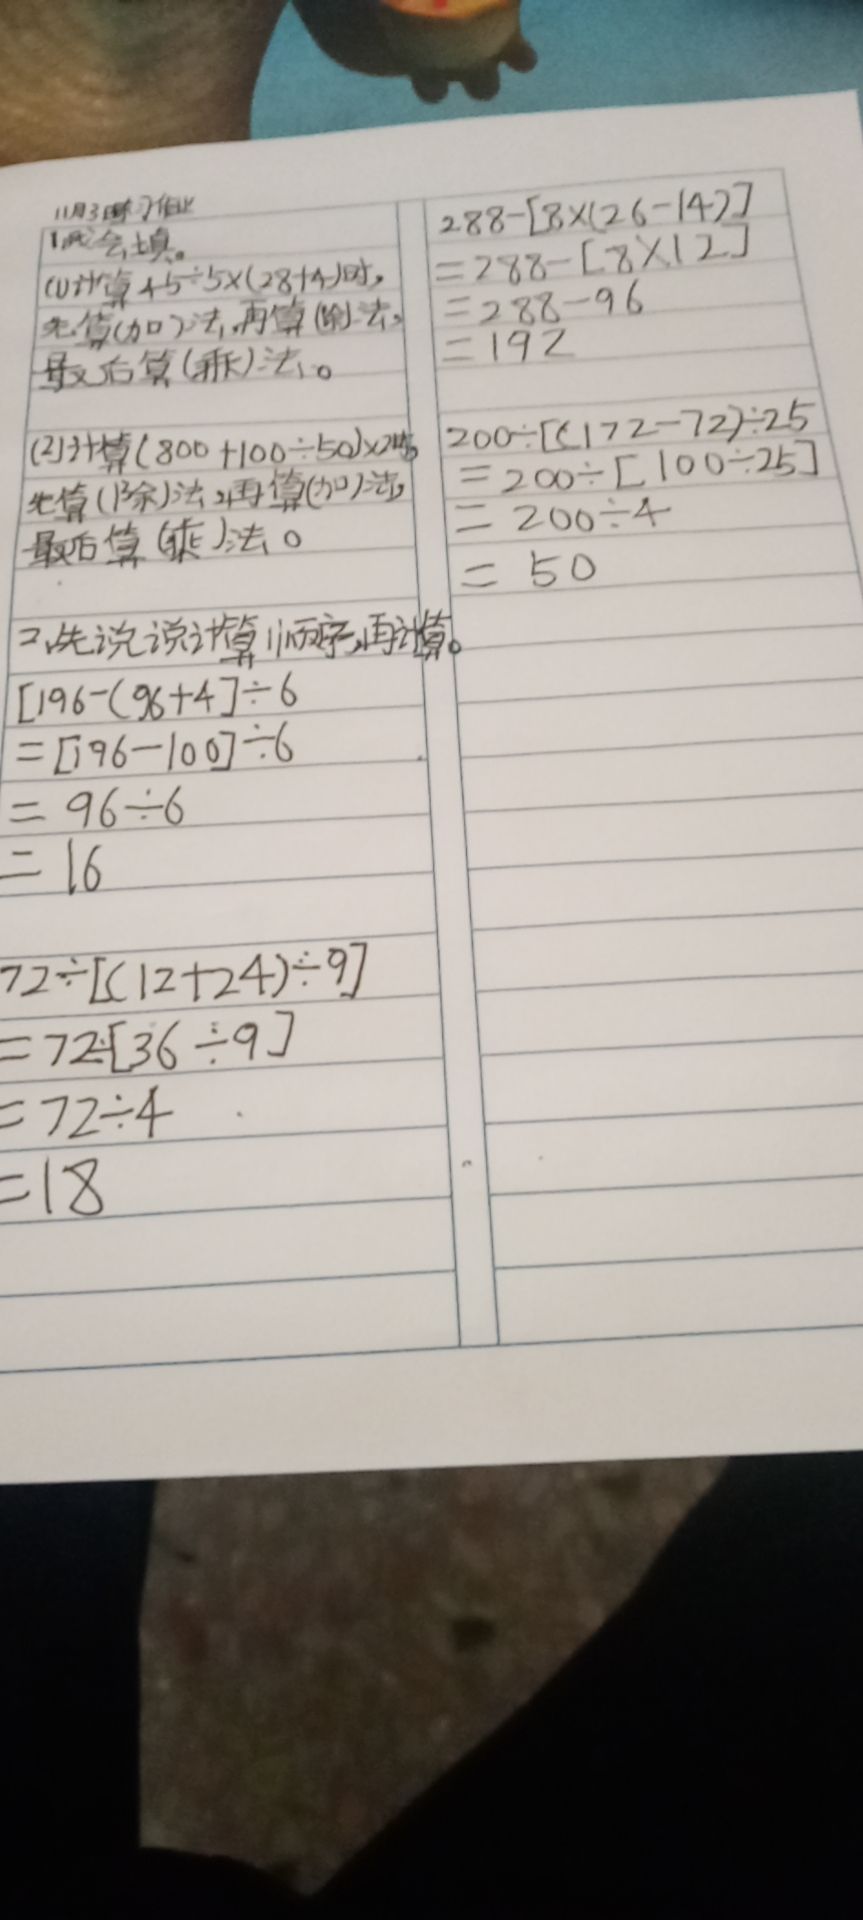 11月3日练习作业
1.我会填。
(1)计算45÷5×(28+4)时,
先算(加)法,再算(除)法,
最后算(乘)法。
(2)计算(800+100÷50)×2时,
先算(除)法,再算(加)法,
最后算(乘)法。
二、先说说计算顺序,再计算。
[196-(96+4]÷6
=[196-100]÷6
=96÷6
=16
72÷[(12+24)÷9]
=72÷[36÷9]
=72÷4
=18
288-[8×(26-14)]
=288-[8×12]
=288-96
=192
200÷[(172-72)÷25
=200÷[100÷25]
=200÷4
=50